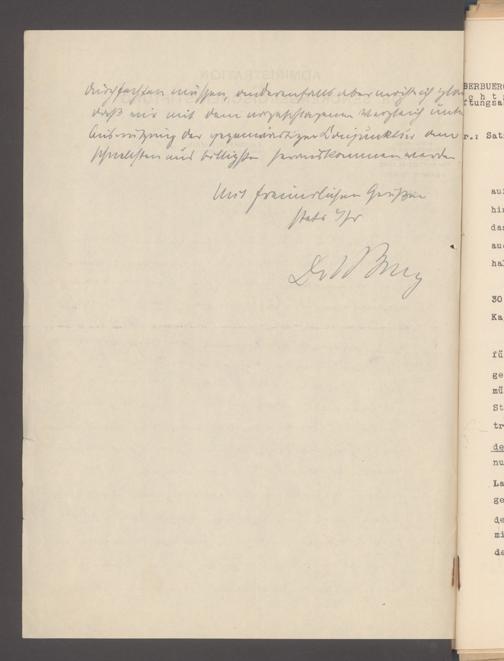 durchfechten müssen, anderenfalls aber möchte ich
daß wir mit dem vorgeschlagenen Vergleich unter
Ausnützung der gegenwärtigen Konjunktur am
schnellsten und billigsten herauskommen werden
Mit freundlichen Grüßen
stets Ihr
BERBUER
r.: Sat
au
hin
das
au
hal
30
Ka
fü
ge
mü
St
tr
de
nu
La
ge
de
mi
de